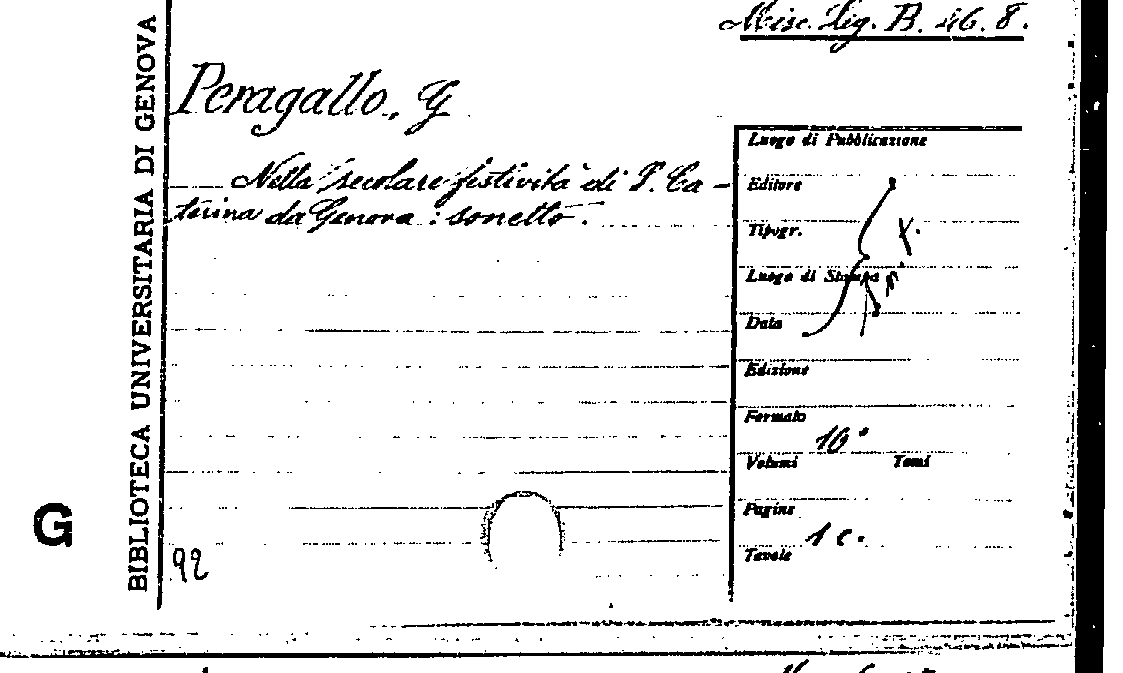 Misc. Lig. B. 46. 8.
BIBLIOTECA UNIVERSITARIA DI GENOVA
Peragallo, G
Nella secolare festività di S. Ca-
terina da Genova : sonetto.
Luogo di Pubblicazione
Editore
Tipogr.
Luogo di Stampa
Data
Edizione
Formato
16°
Volumi Tomi
Pagine
1 c.
Tavole
G
92